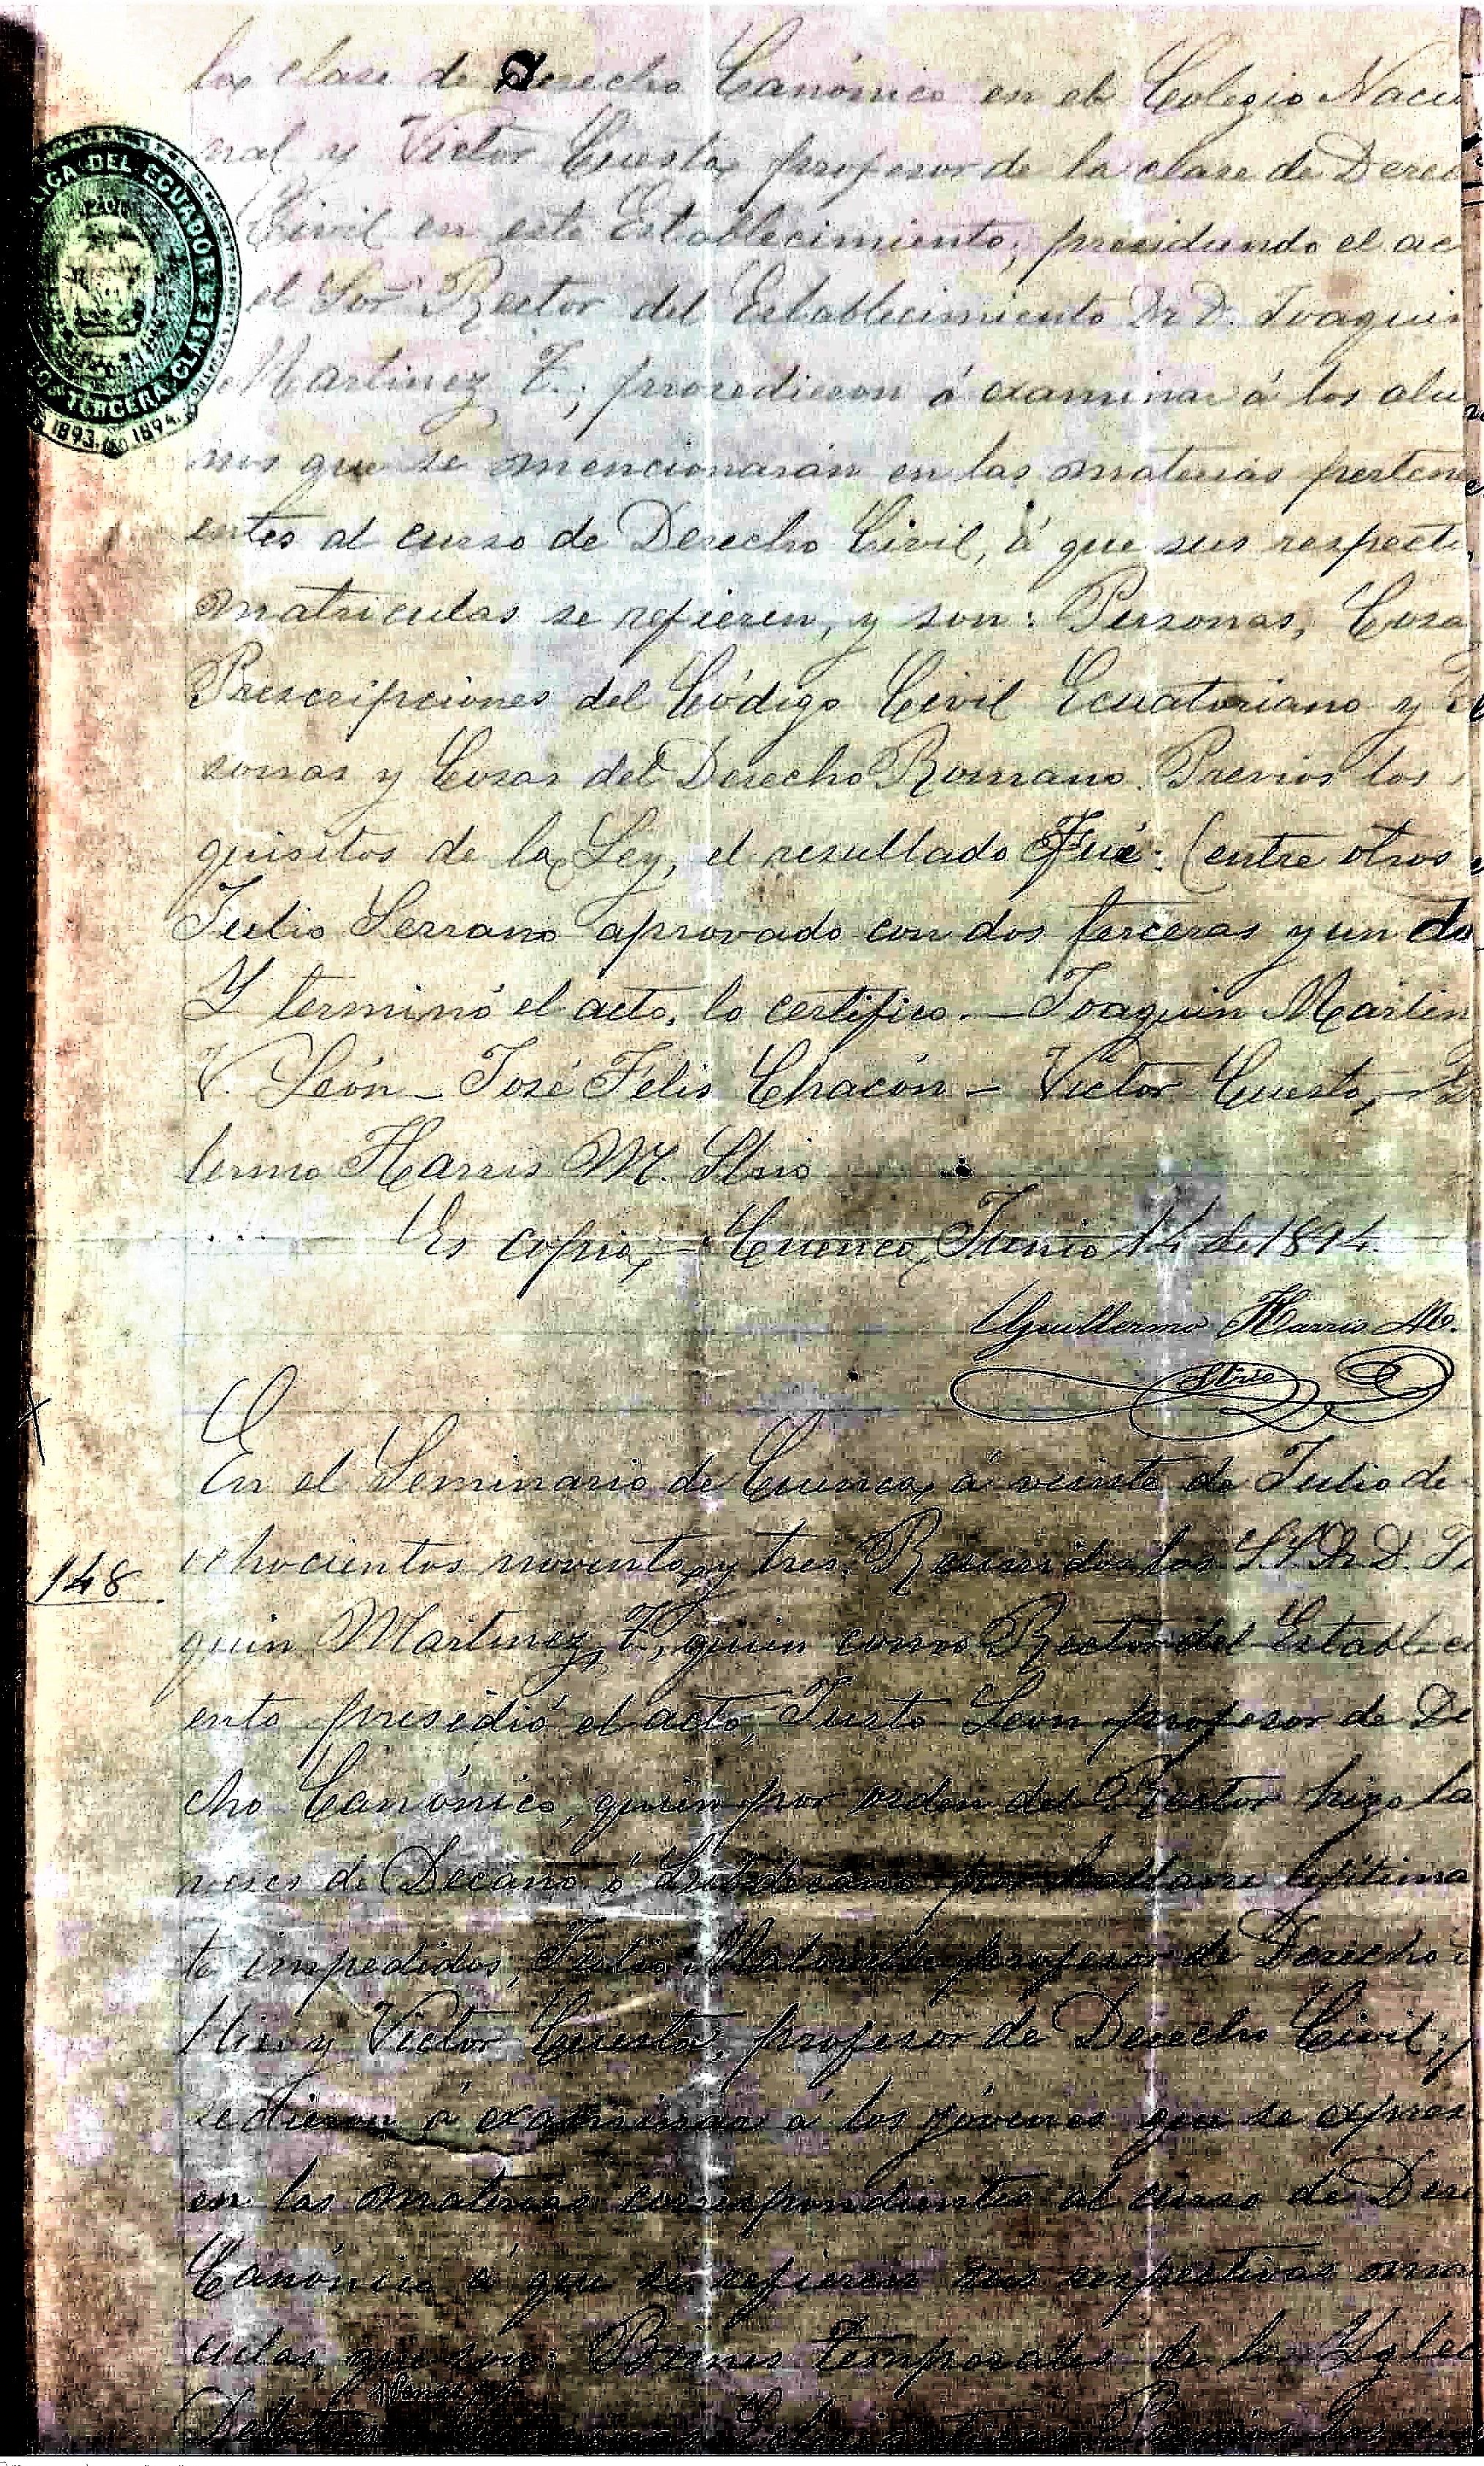 la clase de Derecho Canónico en el Colegio Naci
onal y Victor Cuesta profesor de la clase de Derec
Civil en este Establecimiento; presidiendo el ac
el Sor Rector del Establecimiento Dr D. Joaquin
Martinez T.; procedieron á examinar á los alu
nos que se mencionarán en las materias pertene
entes al curso de Derecho Civil, á que sus respecti
matriculas se refieren, y son: Personas, Cosa
Prescripciones del Código Civil Ecuatoriano y
sonas y Cosas del Derecho Romano. Previos los
quisitos de la Ley, el resultado Fué: (entre otros
Julio Serrano aprovado con dos terceras y un
Y terminó el acto, lo certifico. - Joaquin Martin
V. León - José Felis Chacón - Victor Cuesta, -
lermo Harris M. Strio
Es copia, - Cuenca, Junio 14 de 1894.
Guillermo Harris M.
Strio
En el Seminario de Cuenca, á veinte de Julio de
ochocientos noventa y tres. Reunidos los S.S. Dr D.
148
quin Martinez T, quien como Rector del Estableci
ento presidió el acto, Justo León profesor de De
cho Canónico, quien por orden del Rector hizo la
neses de Decano ó Subdecano por hallarse lejitima
te impedidos, Julio Matovelle profesor de Derecho
y Victor Cuesta, profesor de Derecho Civil;
cedieron á examinar á los jóvenes que se expres
en las materias correspondientes al curso de Dere
Canónico á que se refieren sus respectivas
culas, que son: Bienes temporales de la Igle
DEL ECUADOR
TERCERA CLASE
1893 1894